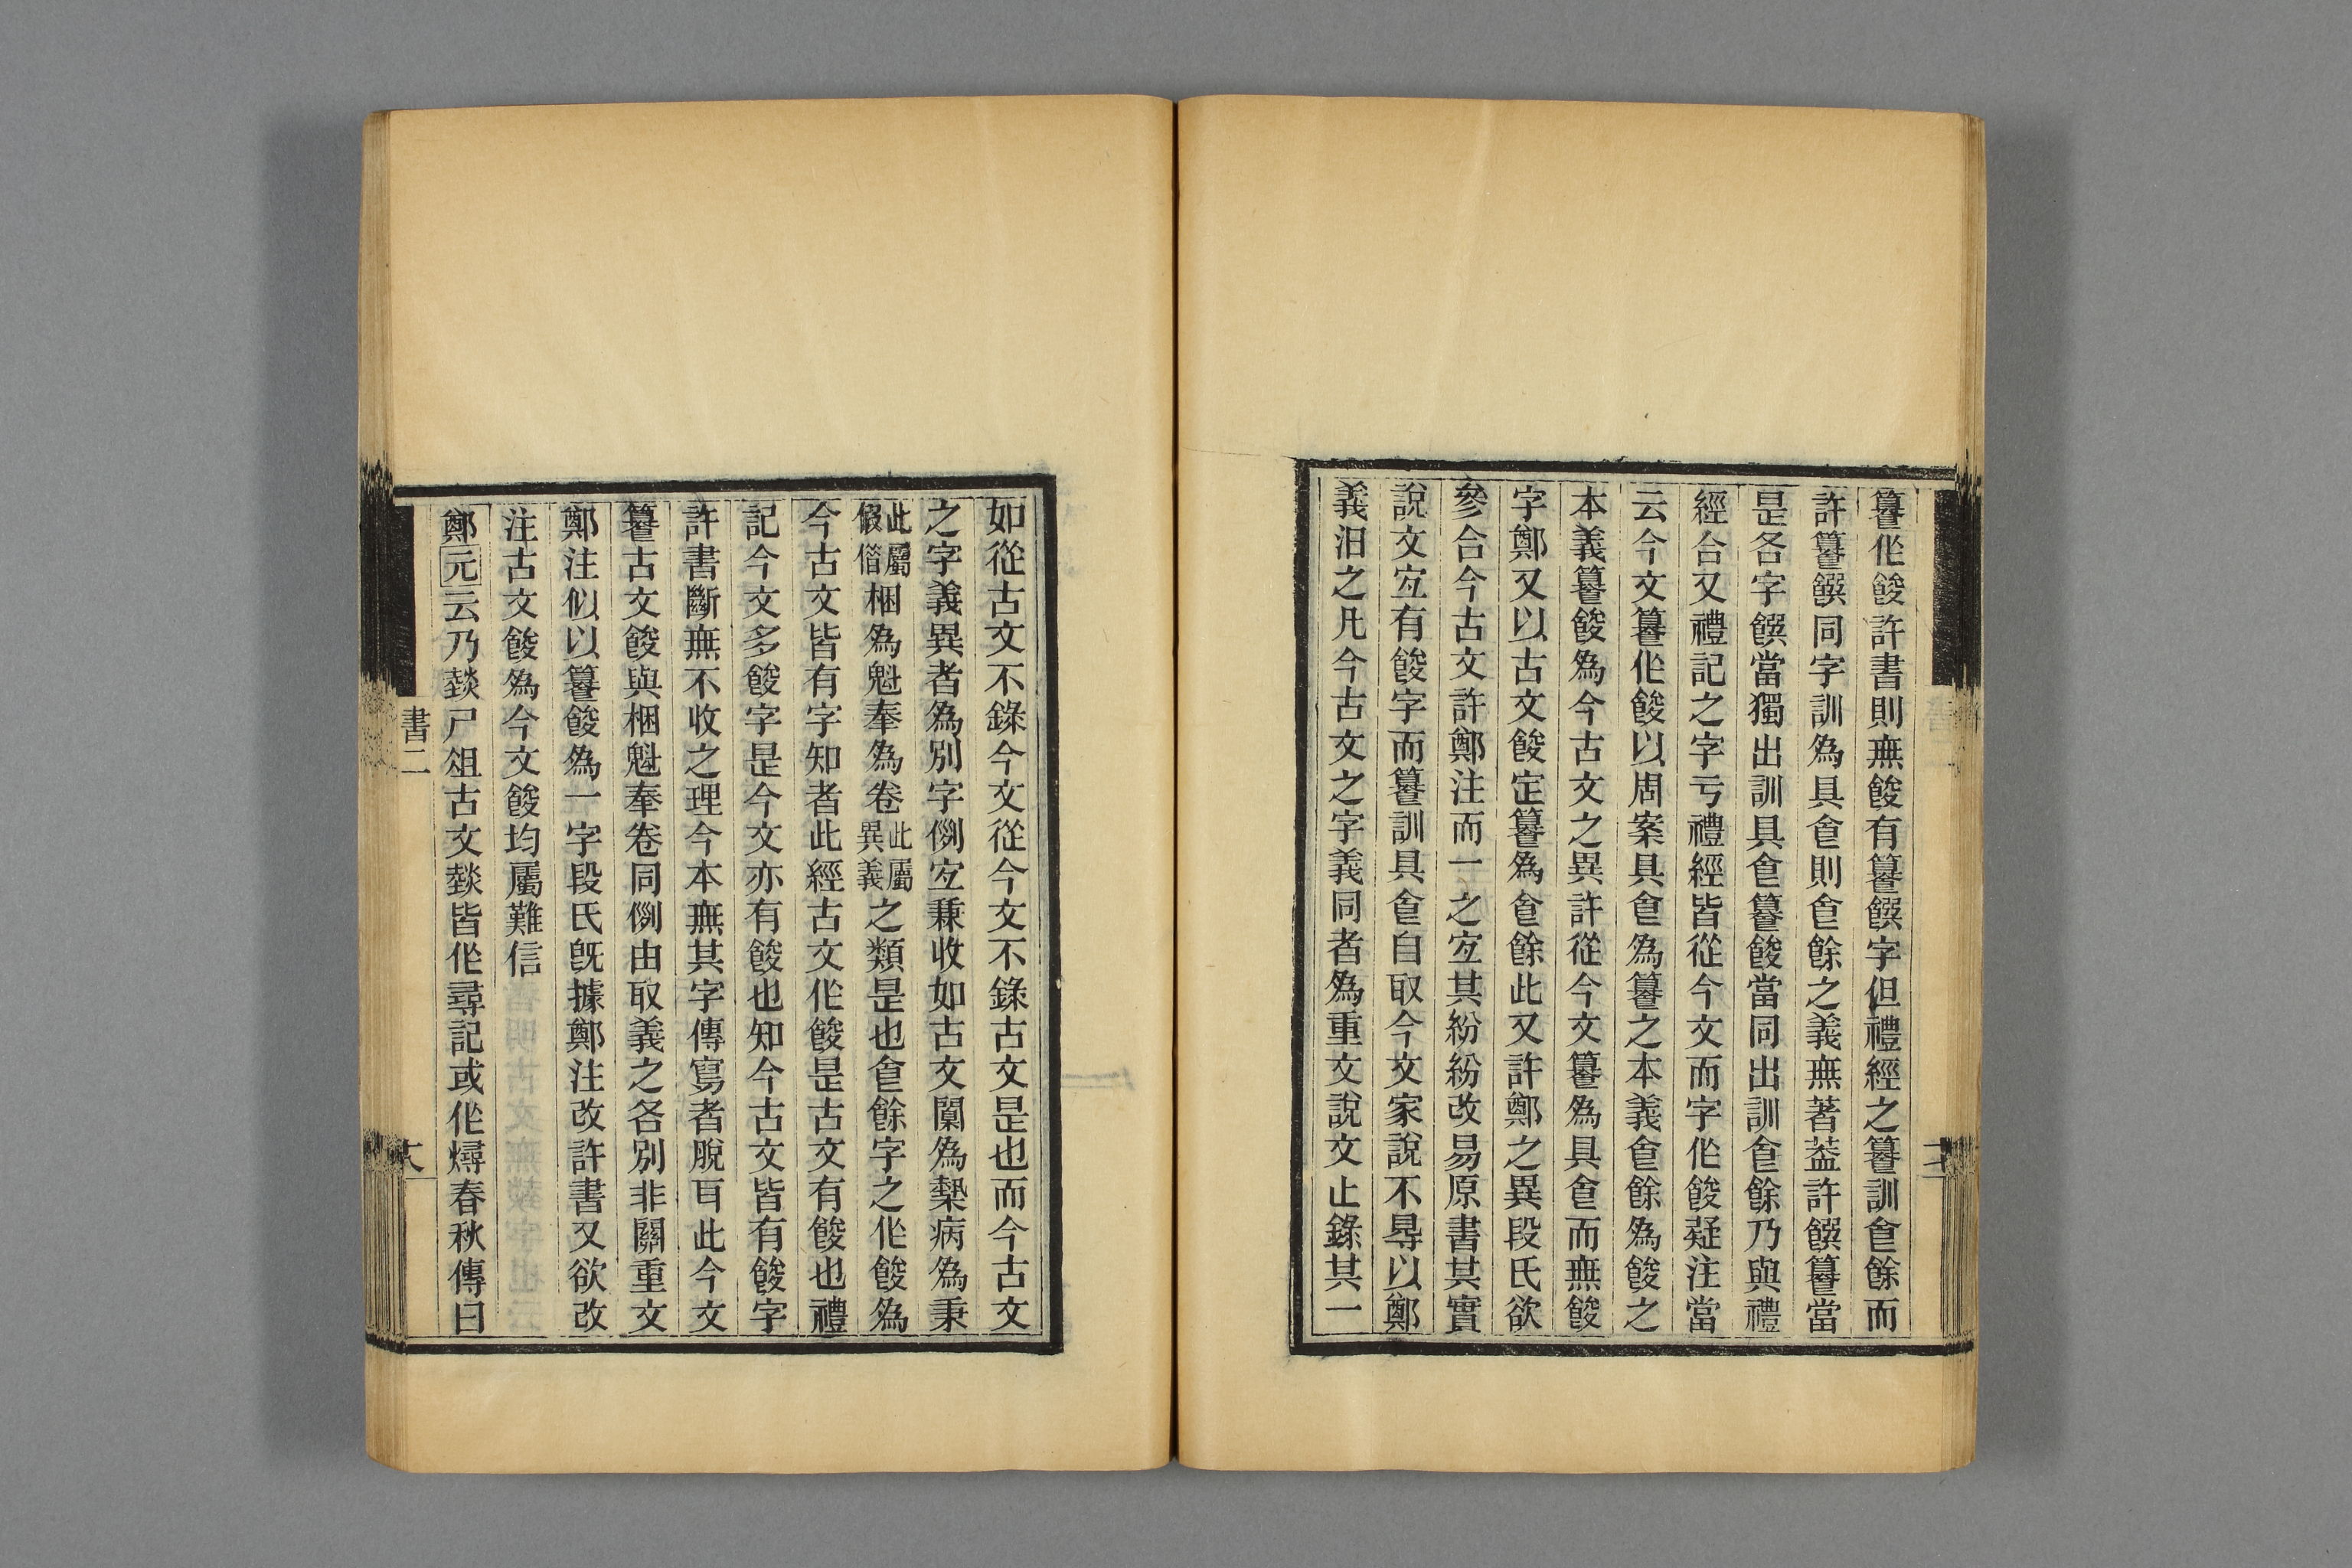 籑作餕許書則無餕有籑饌字但禮經之籑訓食餘而
許籑饌同字訓為具食則食餘之義無著葢許饌籑當
是各字饌當獨出訓具食籑餕當同出訓食餘乃與禮
經合又禮記之字亏禮經皆從今文而字作餕疑注當
云今文籑作餕以周案具食為籑之本義食餘為餕之
本義籑餕為今古文之異許從今文籑為具食而無餕
字鄭又以古文餕定籑為食餘此又許鄭之異段氏欲
參合今古文許鄭注而一之宐其紛紛改易原書其實
說文宐有餕字而籑訓具食自取今文家說不㝵以鄭
義汨之凡今古文之字義同者為重文說文止錄其一
如從古文不錄今文從今文不錄古文是也而今古文
之字義異者為別字例宐兼收如古文闑為槷病為秉
此屬假借梱為魁奉為卷此屬異義之類是也食餘字之作餕為
今古文皆有字知者此經古文作餕是古文有餕也禮
記今文多餕字是今文亦有餕也知今古文皆有餕字
許書斷無不收之理今本無其字傳寫者脫耳此今文
籑古文餕與梱魁奉卷同例由取義之各別非關重文
鄭注似以籑餕為一字段氏旣據鄭注改許書又欲改
注古文餕為今文餕均屬難信
鄭元云乃燅尸俎古文燅皆作尋記或作燖春秋傳曰
書二